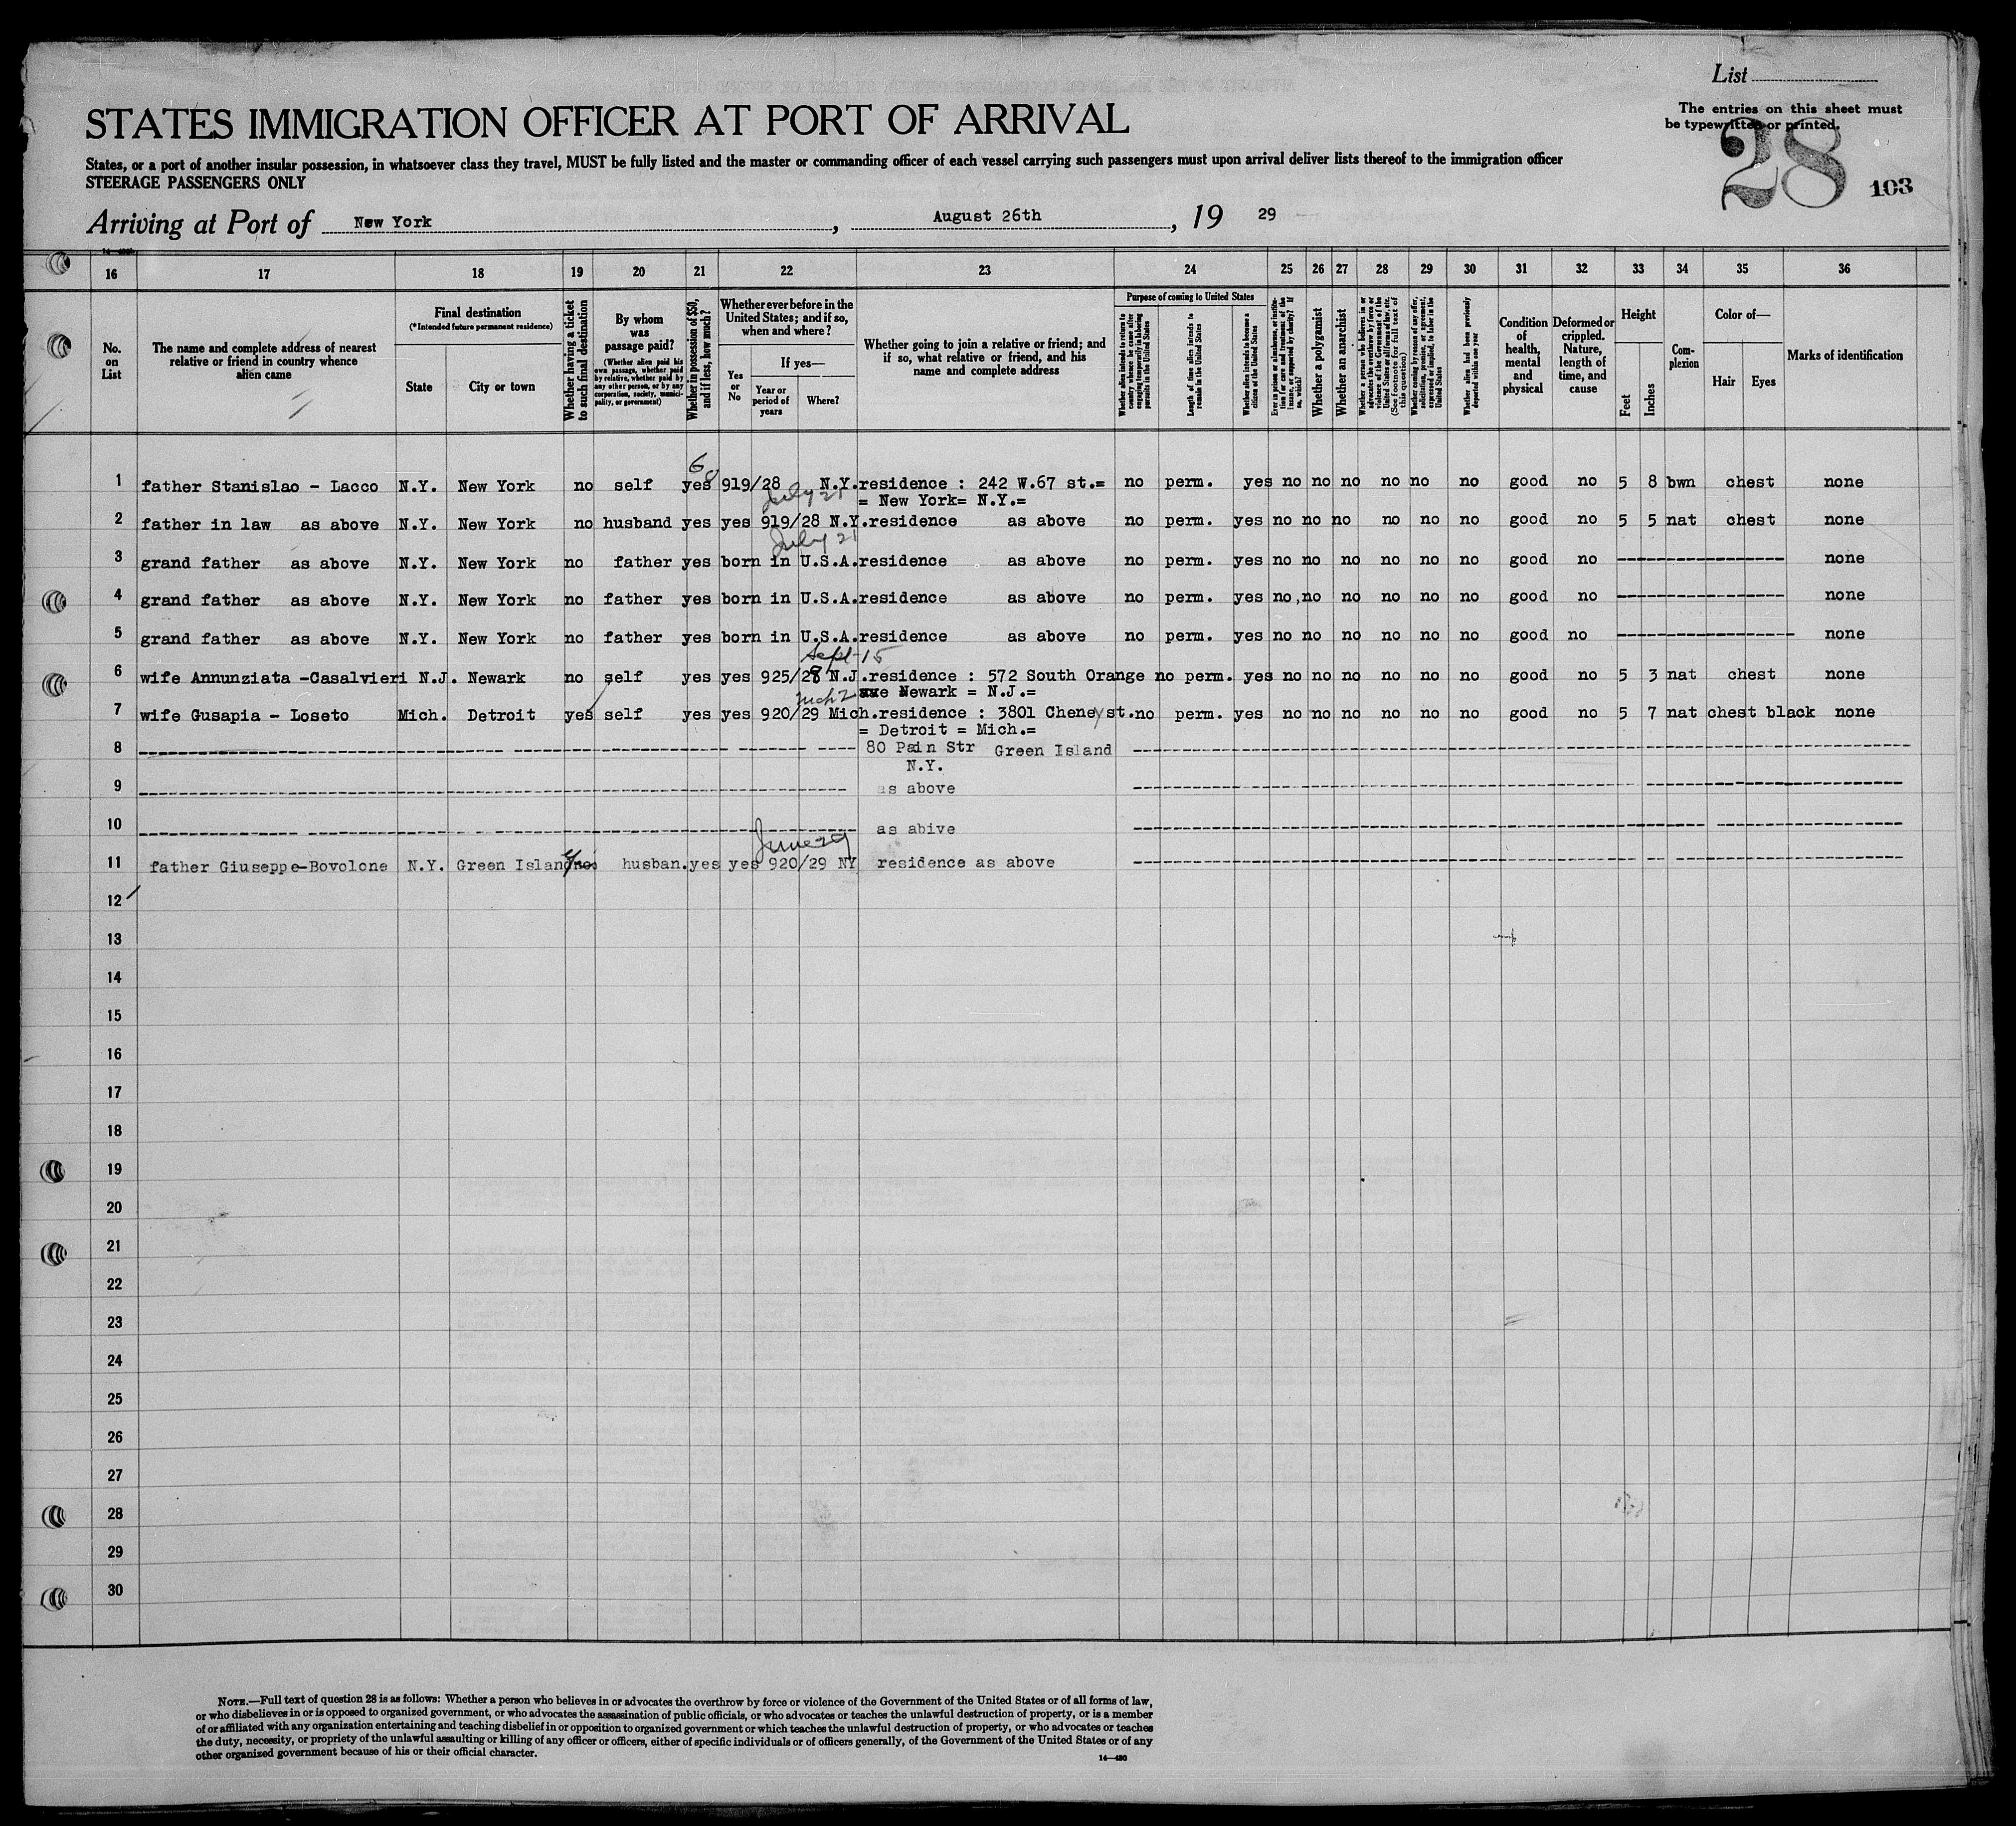 List
The entries on this sheet must
be typewritten or printed.
28 103
STATES IMMIGRATION OFFICER AT PORT OF ARRIVAL
States, or a port of another insular possession, in whatsoever class they travel, MUST be fully listed and the master or commanding officer of each vessel carrying such passengers must upon arrival deliver lists thereof to the immigration officer
STEERAGE PASSENGERS ONLY
Arriving at Port of New York, August 26th, 19 29
16 17 18 19 20 21 22 23 24 25 26 27 28 29 30 31 32 33 34 35 36
No. on List
The name and complete address of nearest relative or friend in country whence alien came
Final destination
(*Intended future permanent residence)
State
City or town
Whether having a ticket to such final destination
By whom was passage paid?
(Whether alien paid his own passage, whether paid by relative, whether paid by any other person, or by any corporation, society, municipality, or government)
Whether in possession of $50, and if less, how much?
Whether ever before in the United States; and if so, when and where?
Yes or No
If yes—
Year or period of years
Where?
Whether going to join a relative or friend; and if so, what relative or friend, and his name and complete address
Purpose of coming to United States
Whether alien intends to return to country whence he came after engaging temporarily in laboring pursuits in the United States
Length of time alien intends to remain in the United States
Whether alien intends to become a citizen of the United States
Ever in prison or almshouse, or institution for care and treatment of the insane, or supported by charity? If so, which?
Whether a polygamist
Whether an anarchist
Whether a person who believes in or advocates the overthrow by force or violence of the Government of the United States or all forms of law, etc. (See footnote for full text of this question)
Whether coming by reason of any offer, solicitation, promise, or agreement, expressed or implied, to labor in the United States
Whether alien had been previously deported within one year
Condition of health, mental and physical
Deformed or crippled. Nature, length of time, and cause
Height
Feet
Inches
Complexion
Color of—
Hair
Eyes
Marks of identification
60
1 father Stanislao - Lacco N.Y. New York no self yes 919/28 N.Y. residence : 242 W.67 st.= no perm. yes no no no no no no good no 5 8 bwn chest none
July 21 = New York= N.Y.=
2 father in law as above N.Y. New York no husband yes yes 919/28 N.Y. residence as above no perm. yes no no no no no no good no 5 5 nat chest none
July 21
3 grand father as above N.Y. New York no father yes born in U.S.A. residence as above no perm. yes no no no no no no good no none
4 grand father as above N.Y. New York no father yes born in U.S.A. residence as above no perm. yes no no no no no no good no none
5 grand father as above N.Y. New York no father yes born in U.S.A. residence as above no perm. yes no no no no no no good no none
Sept-15
6 wife Annunziata -Casalvieri N.J. Newark no self yes yes 925/28 N.J. residence : 572 South Orange no perm. yes no no no no no no good no 5 3 nat chest none
Newark = N.J.=
7 wife Gusapia - Loseto Mich. Detroit yes self yes yes 920/29 Mich. residence : 3801 Cheney st. no perm. yes no no no no no no good no 5 7 nat chest black none
= Detroit = Mich.=
8 80 Pain Str Green Island
N.Y.
9 as above
10 as abive
June 29
11 father Giuseppe-Bovolone N.Y. Green Island husban. yes yes 920/29 NY residence as above
12
13
14
15
16
17
18
19
20
21
22
23
24
25
26
27
28
29
30
NOTE.—Full text of question 28 is as follows: Whether a person who believes in or advocates the overthrow by force or violence of the Government of the United States or of all forms of law,
or who disbelieves in or is opposed to organized government, or who advocates the assassination of public officials, or who advocates or teaches the unlawful destruction of property, or is a member
of or affiliated with any organization entertaining and teaching disbelief in or opposition to organized government or which teaches the unlawful destruction of property, or who advocates or teaches
the duty, necessity, or propriety of the unlawful assaulting or killing of any officer or officers, either of specific individuals or of officers generally, of the Government of the United States or of any
other organized government because of his or their official character.
14—430